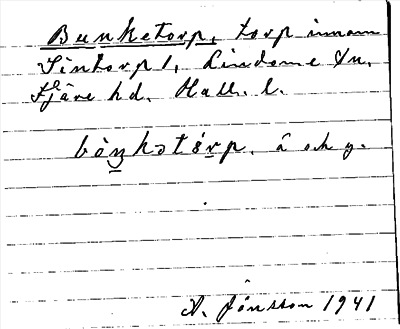 Bunketorp, torp innom
Sintorp 1, Lindome sn,
Fjäre hd. Hall. l.
bòŋkətórp. â och y.
A. Jönsson 1941